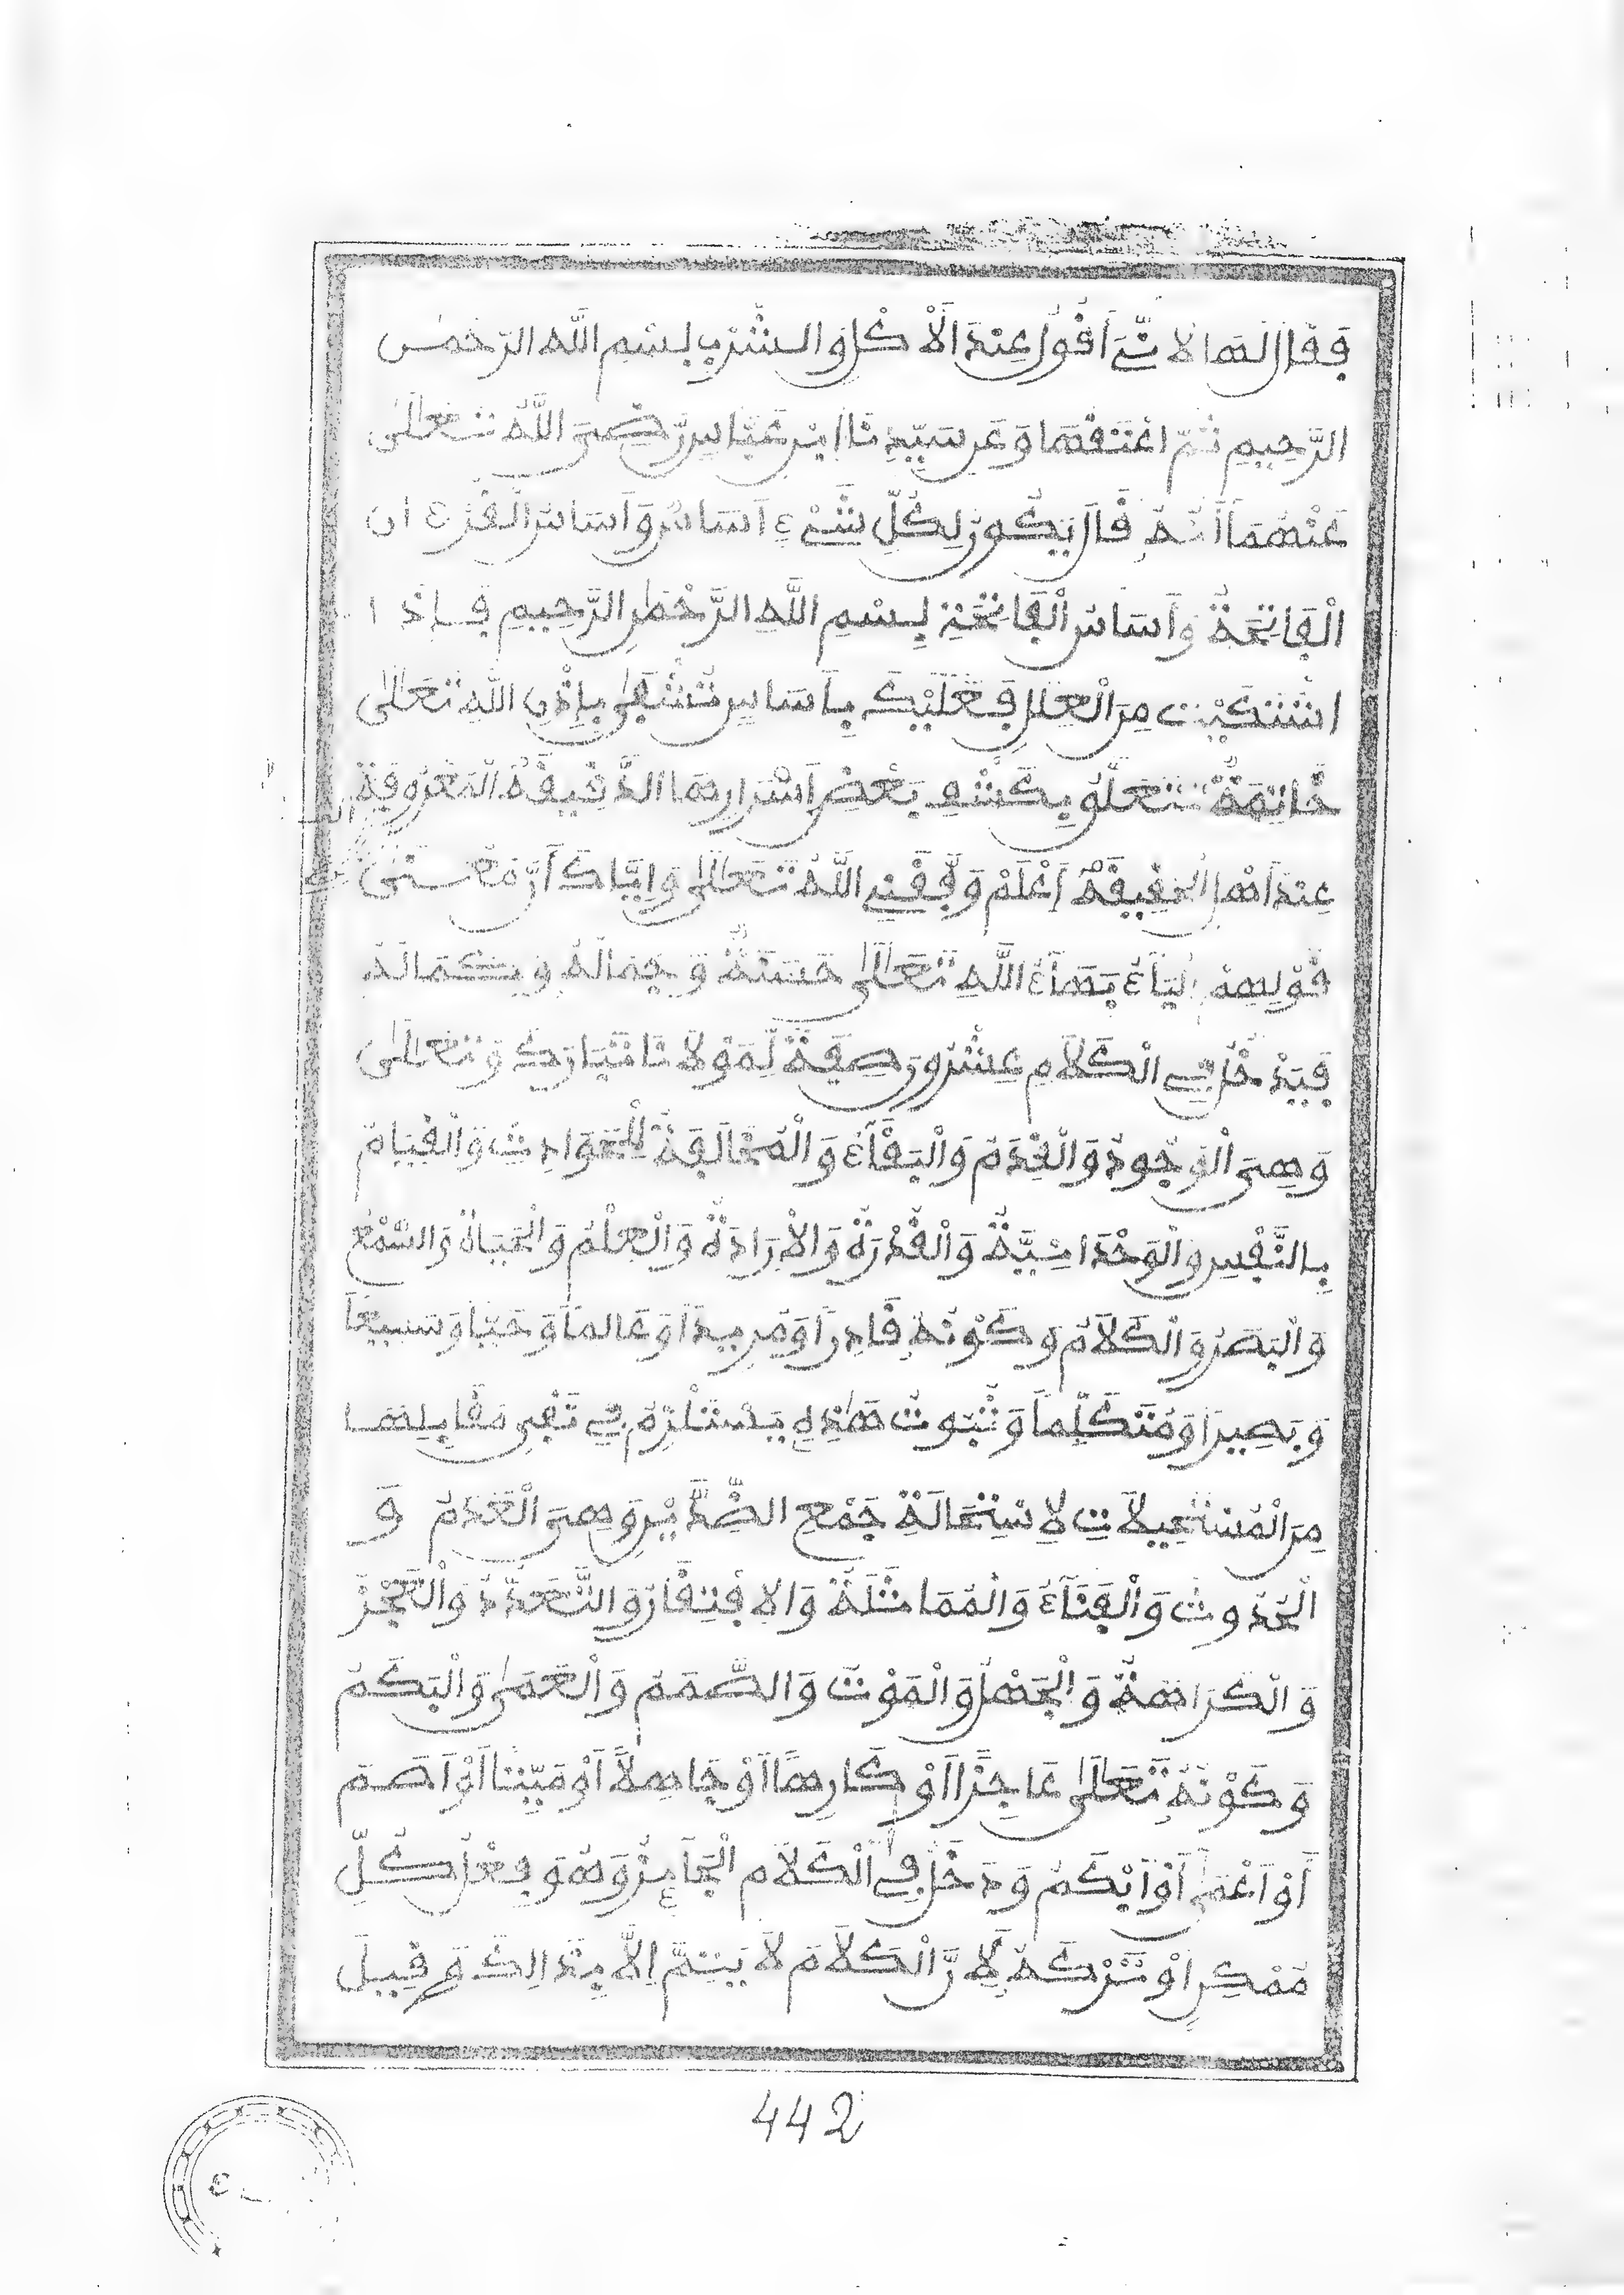 فَقَالَ لَهَا لِأَنِّي أَقُولُ عِنْدَ الْأَكْلِ وَالشُّرْبِ بِسْمِ اللَّهِ الرَّحْمٰنِ
الرَّحِيمِ ثُمَّ اعْتَقَهَا وَعَن سَيِّدِنَا ابْنِ عَبَّاسٍ رَّضِيَ اللَّهُ تَعَالَىٰ
عَنْهُمَا أَنَّهُ قَالَ يَكُونُ لِكُلِّ شَيْءٍ اَسَاسٌ وَاَسَاسُ الْقُرْءَانِ
الْفَاتِحَةُ وَاَسَاسُ الْفَاتِحَةِ بِسْمِ اللَّهِ الرَّحْمٰنِ الرَّحِيمِ فَإِذَا
اشْتَكَيْتَ مِنَ الْعِلَلِ فَعَلَيْكَ بِاَسَاسٍ تُشْفَىٰ بِإِذْنِ اللَّهِ تَعَالَىٰ
خَاتِمَةٌ تَتَعَلَّقُ بِكَشْفِ بَعْضِ اَسْرَارِهَا الدَّقِيقَةِ الْمَعْرُوفَةِ
عِنْدَ أَهْلِ الْحَقِيقَةِ اَعْلَمْ وَفَّقَنِي اللَّهُ تَعَالَىٰ وَإِيَّاكَ أَنَّ مَعْنَىٰ
قَوْلِهِمْ الْبَآءُ بَهَآءُ اللَّهِ تَعَالَىٰ حَسَنَتُهُ وَجِمَالُهُ وَبِكَمَالُهُ
فَيَدْخُلُ فِي الْكَلَامِ عِشْرُونَ صِفَةً لِّمَوْلَانَا تَبَارَكَ وَتَعَالَىٰ
وَهِيَ الْوُجُودُ وَالْقِدَمُ وَالْبَقَآءُ وَالْمُخَالَفَةُ لِلْحَوَادِثِ وَالْقِيَامُ
بِالنَّفْسِ وَالْوَحْدَانِيَّةُ وَالْقُدْرَةُ وَالْإِرَادَةُ وَالْعِلْمُ وَالْحَيَاةُ وَالسَّمْعُ
وَالْبَصَرُ وَالْكَلَامُ وَكَوْنُهُ قَادِراً وَمُرِيداً وَعَالِماً وَحَيّاً وَسَمِيعاً
وَبَصِيراً وَمُتَكَلِّماً وَثُبُوتُ هَٰذِهِ يَسْتَلْزِمُ فِي نَفْيِ مَقَابِلِهَا
مِنَ الْمُسْتَحِيلَاتِ لِاسْتِحَالَةِ جَمْعِ الضِّدَّيْنِ وَهِيَ الْعَدَمُ وَ
الْحُدُوثُ وَالْفَنَآءُ وَالْمُمَاثَلَةُ وَالِافْتِقَارُ وَالتَّعَدُّدُ وَالْعَجْزُ
وَالْكَرَاهَةُ وَالْجَهْلُ وَالْمَوْتُ وَالصَّمَمُ وَالْعَمَىٰ وَالْبَكَمُ
وَكَوْنُهُ تَعَالَىٰ عَاجِزاً اَوْ كَارِهاً اَوْ جَاهِلاً اَوْ مَيِّتاً اَوْ اَصَمَّ
أَوْ اَعْمَىٰ أَوْ اَبْكَمُ وَدَخَلَ فِي الْكَلَامِ الْجَآئِزُ وَهُوَ فِعْلُ كُلِّ
مُمْكِنٍ اَوْ تَرْكُهُ لِأَنَّ الْكَلَامَ لَا يَتِمُّ إِلَّا بِذَالِكَ وَقِيلَ
442